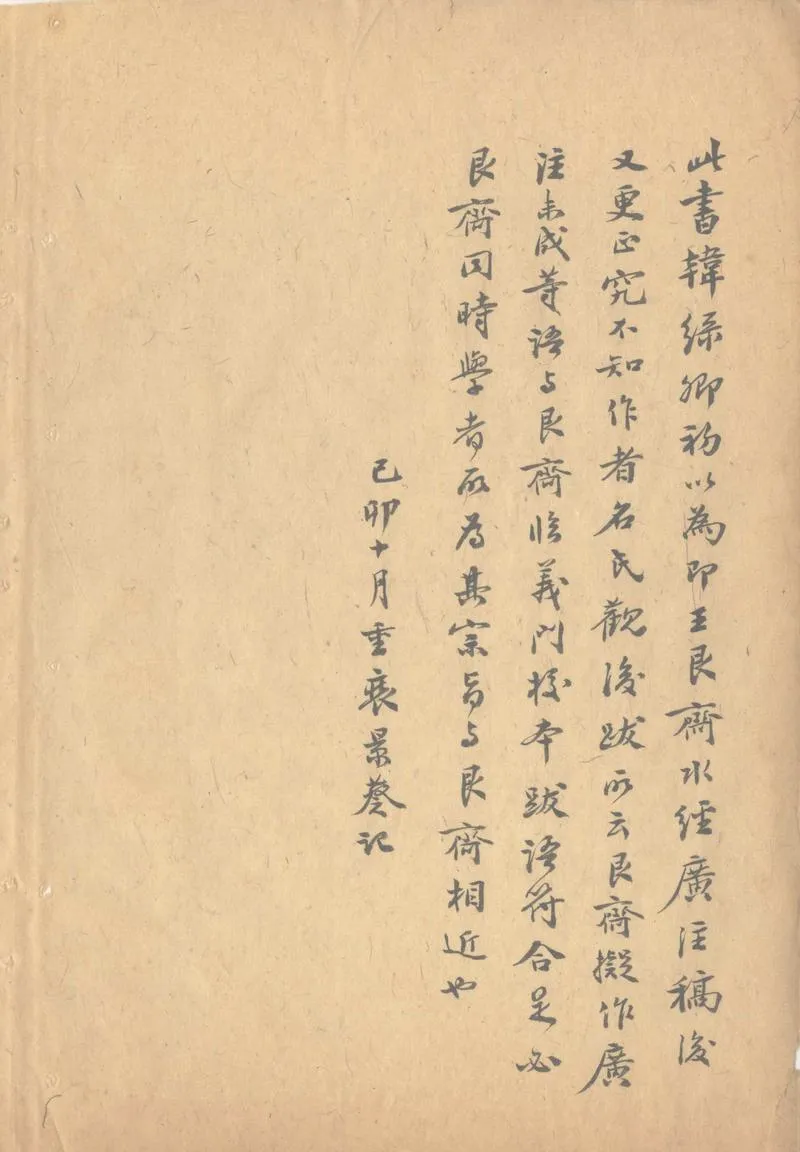 此書韓綠卿初以為即王艮齋水經廣注稿後
又更正究不知作者名氏觀後跋所云艮齋擬作廣
注未成等語与艮齋臨義門校本跋語符合是必
艮齋同時學者所為其宗旨与艮齋相近也
己卯十月重裝景葵記